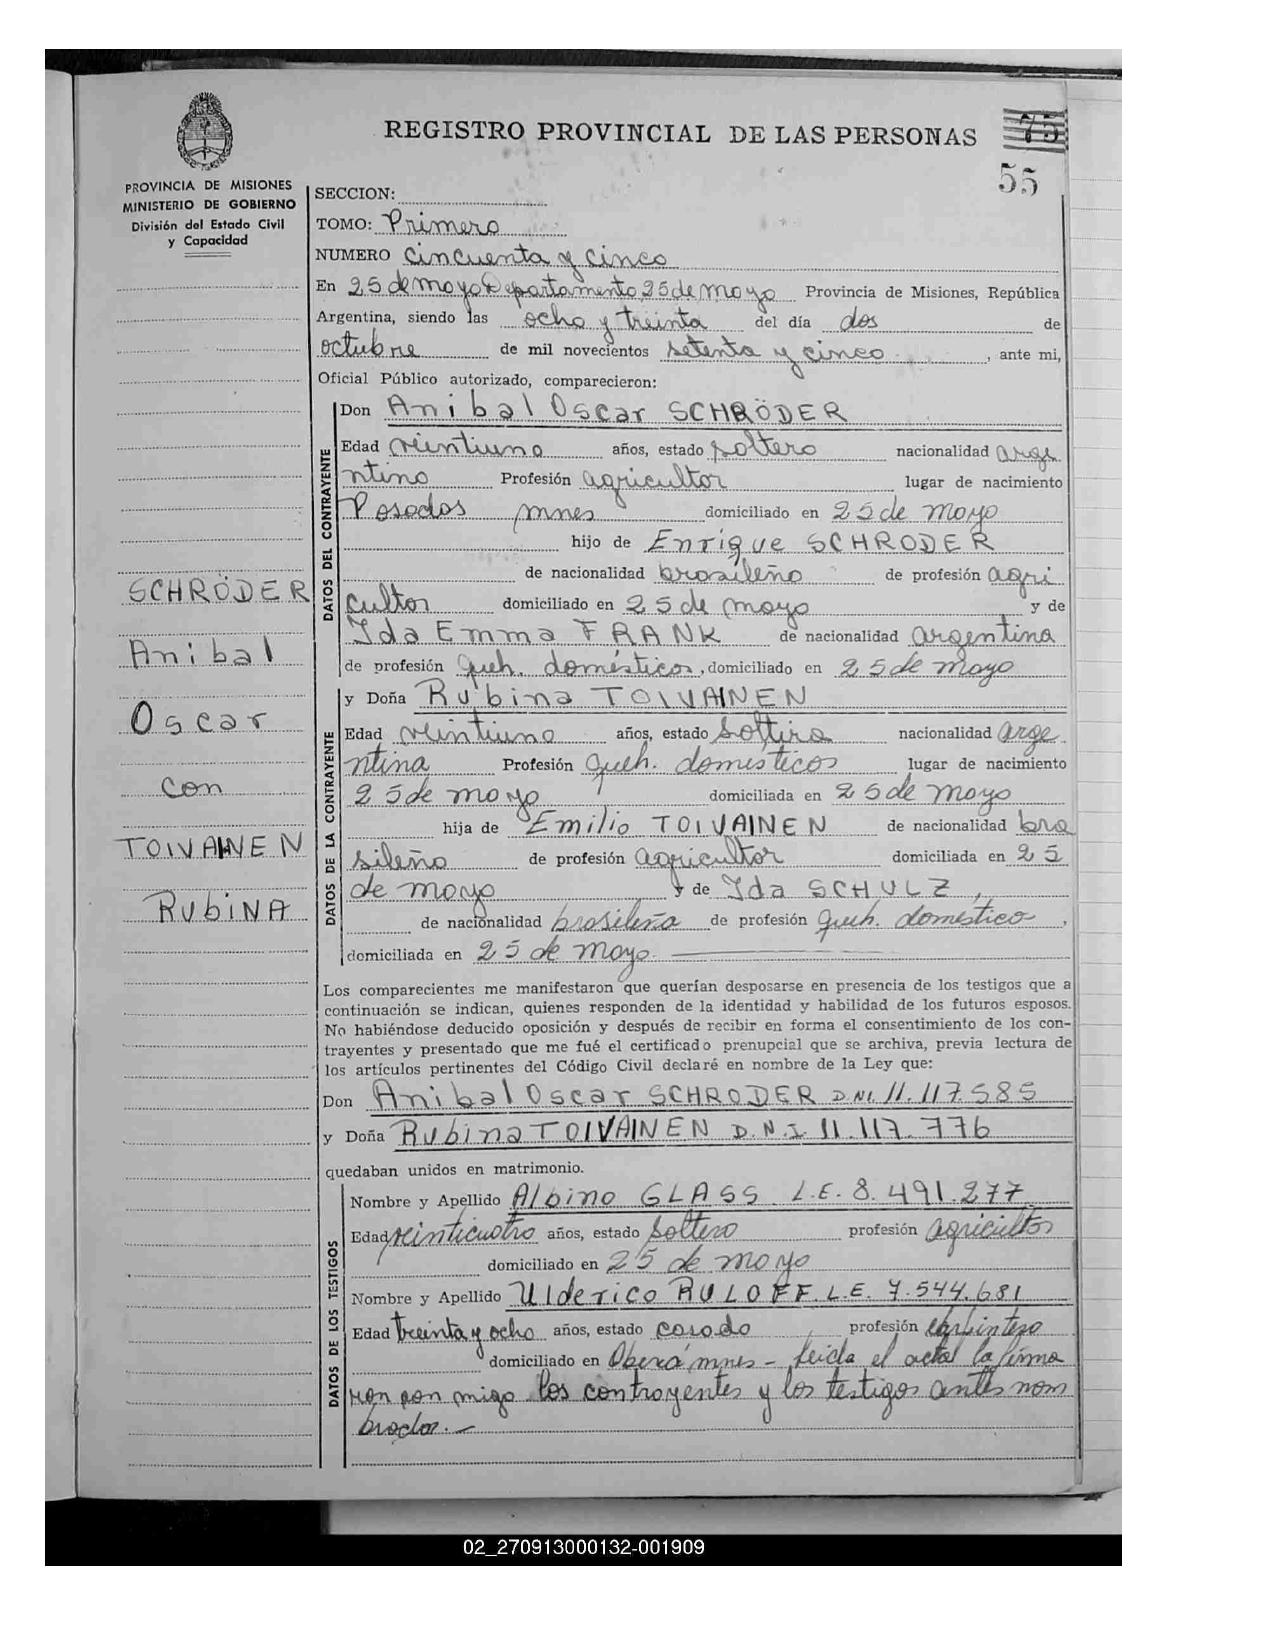 REGISTRO PROVINCIAL DE LAS PERSONAS
75
55
PROVINCIA DE MISIONES
MINISTERIO DE GOBIERNO
División del Estado Civil
y Capacidad
SECCION:
TOMO: Primero
NUMERO Cincuenta y cinco
En 25 de mayo Departamento 25 de mayo Provincia de Misiones, República
Argentina, siendo las ocho y treinta del día dos de
octubre de mil novecientos setenta y cinco, ante mi,
Oficial Público autorizado, comparecieron:
DATOS DEL CONTRAYENTE
Don Anibal Oscar SCHRÖDER
Edad veintiuno años, estado soltero nacionalidad arge
ntino Profesión agricultor lugar de nacimiento
Posadas mnes domiciliado en 25 de mayo
hijo de Enrique SCHRODER
de nacionalidad brasileño de profesión agri
cultor domiciliado en 25 de mayo y de
Ida Emma FRANK de nacionalidad argentina
de profesión queh. domésticos, domiciliado en 25 de mayo
SCHRÖDER
Anibal
Oscar
con
TOIVAINEN
RUBINA
DATOS DE LA CONTRAYENTE
y Doña Rubina TOIVAINEN
Edad veintiuno años, estado soltera nacionalidad arge
ntina Profesión queh. domésticos lugar de nacimiento
25 de mayo domiciliada en 25 de mayo
hija de Emilio TOIVAINEN de nacionalidad bra
sileño de profesión agricultor domiciliada en 25
de mayo y de Ida SCHULZ,
de nacionalidad brasileña de profesión queh. doméstico,
domiciliada en 25 de mayo.
Los comparecientes me manifestaron que querían desposarse en presencia de los testigos que a
continuación se indican, quienes responden de la identidad y habilidad de los futuros esposos.
No habiéndose deducido oposición y después de recibir en forma el consentimiento de los con-
trayentes y presentado que me fué el certificado prenupcial que se archiva, previa lectura de
los artículos pertinentes del Código Civil declaré en nombre de la Ley que:
Don Anibal Oscar SCHRODER D.NI. 11.117.585
y Doña Rubina TOIVAINEN D.N.I 11.117.776
quedaban unidos en matrimonio.
DATOS DE LOS TESTIGOS
Nombre y Apellido Albino GLASS L.E. 8.491.277
Edad veinticuatro años, estado soltero profesión agricultor
domiciliado en 25 de mayo
Nombre y Apellido Ulderico RULOFF. L.E. 7.544.681
Edad treinta y ocho años, estado casado profesión carpintero
domiciliado en Oberá mnes - Leida el acta la firma
ron con migo los contrayentes y los testigos antes nom
brados.-
02_270913000132-001909